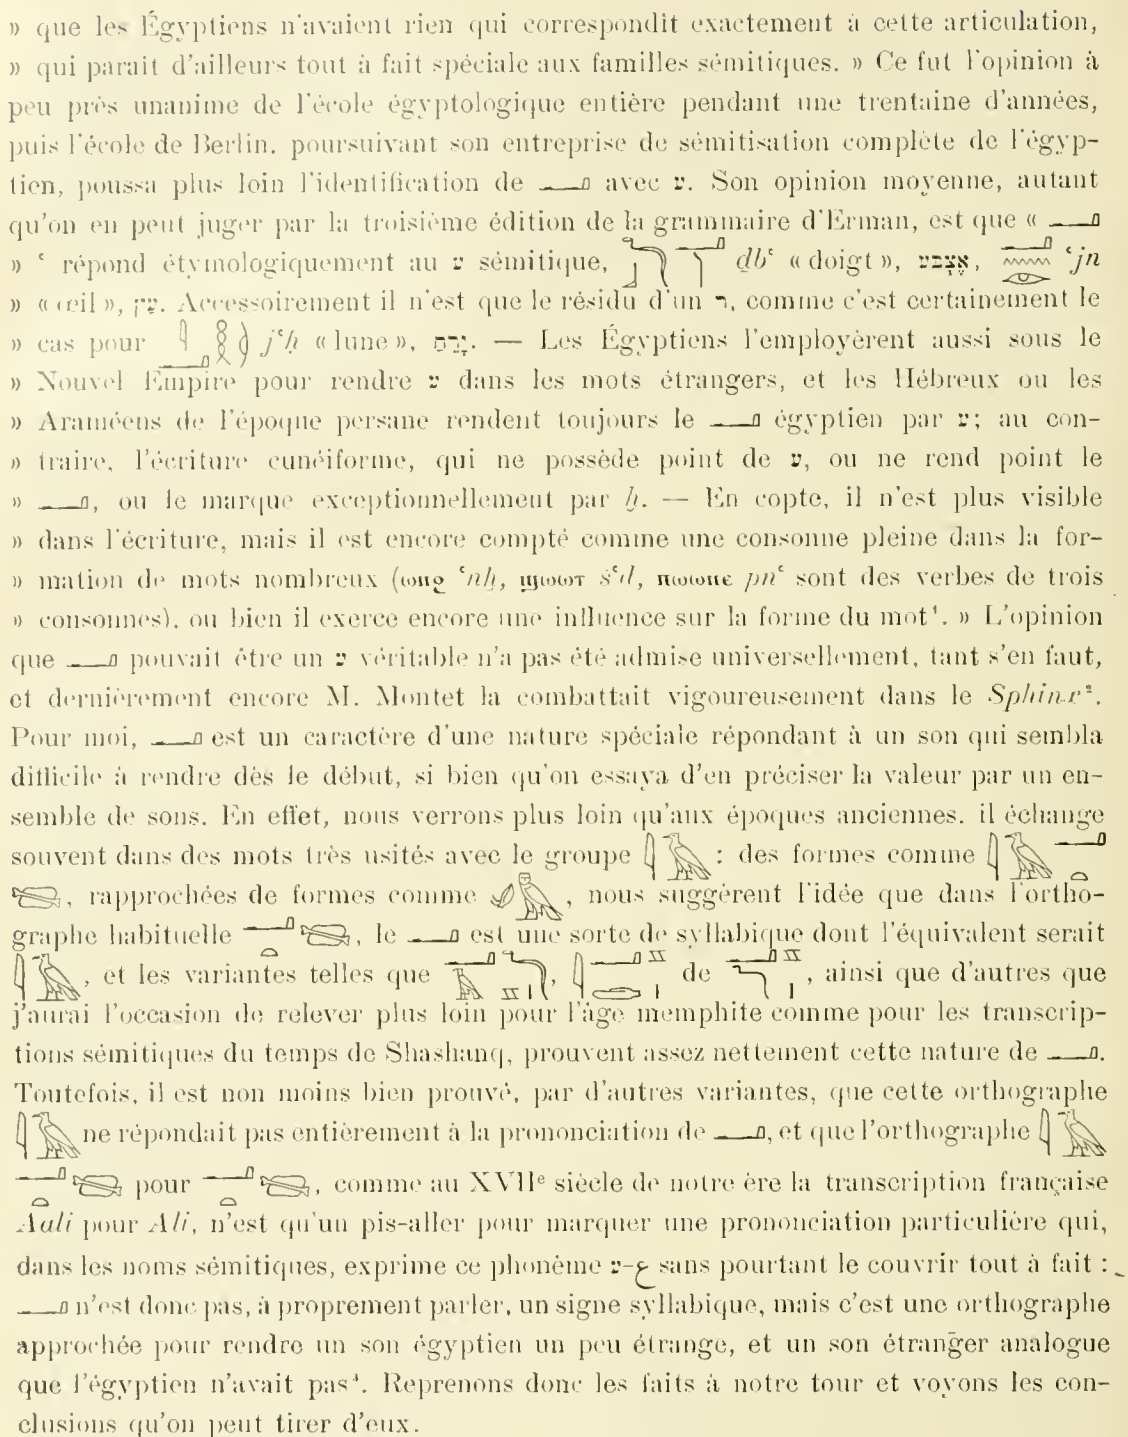 » que les Égyptiens n'avaient rien qui correspondit exactement à cette articulation,
» qui parait d'ailleurs tout à fait spéciale aux familles sémitiques. » Ce fut l'opinion à
peu près unanime de l'école égyptologique entière pendant une trentaine d'années,
puis l'école de Berlin, poursuivant son entreprise de sémitisation complète de l'égyp-
tien, poussa plus loin l'identification de 𓂝 avec ע. Son opinion moyenne, autant
qu'on en peut juger par la troisième édition de la grammaire d'Erman, est que « 𓂝
» ʿ répond étymologiquement au ע sémitique, ḏbʿ « doigt », אֶצְבַּע, ʿjn
» « œil », עין. Accessoirement il n'est que le résidu d'un ר, comme c'est certainement le
» cas pour 𓇋𓂝𓎛 jʿḥ « lune », יָרֵחַ. — Les Égyptiens l'employèrent aussi sous le
» Nouvel Empire pour rendre ע dans les mots étrangers, et les Hébreux ou les
» Araméens de l'époque persane rendent toujours le 𓂝 égyptien par ע; au con-
» traire, l'écriture cunéiforme, qui ne possède point de ע, ou ne rend point le
» 𓂝, ou le marque exceptionnellement par ḫ. — En copte, il n'est plus visible
» dans l'écriture, mais il est encore compté comme une consonne pleine dans la for-
» mation de mots nombreux (ⲱⲛϩ ʿnḫ, ϣⲱⲱⲧ šʿd, ⲡⲱⲱⲛⲉ pnʿ sont des verbes de trois
» consonnes), ou bien il exerce encore une influence sur la forme du mot¹. » L'opinion
que 𓂝 pouvait être un ע véritable n'a pas été admise universellement, tant s'en faut,
et dernièrement encore M. Montet la combattait vigoureusement dans le Sphinx².
Pour moi, 𓂝 est un caractère d'une nature spéciale répondant à un son qui sembla
difficile à rendre dès le début, si bien qu'on essaya d'en préciser la valeur par un en-
semble de sons. En effet, nous verrons plus loin qu'aux époques anciennes, il échange
souvent dans des mots très usités avec le groupe 𓇋𓅓 : des formes comme 𓇋𓅓𓂝𓏏
, rapprochées de formes comme , nous suggèrent l'idée que dans l'ortho-
graphe habituelle , le 𓂝 est une sorte de syllabique dont l'équivalent serait
, et les variantes telles que , de , ainsi que d'autres que
j'aurai l'occasion de relever plus loin pour l'âge memphite comme pour les transcrip-
tions sémitiques du temps de Shashanq, prouvent assez nettement cette nature de 𓂝.
Toutefois, il est non moins bien prouvé, par d'autres variantes, que cette orthographe
ne répondait pas entièrement à la prononciation de 𓂝, et que l'orthographe
pour , comme au XVIIᵉ siècle de notre ère la transcription française
Aali pour Ali, n'est qu'un pis-aller pour marquer une prononciation particulière qui,
dans les noms sémitiques, exprime ce phonème ע-ع sans pourtant le couvrir tout à fait :
𓂝 n'est donc pas, à proprement parler, un signe syllabique, mais c'est une orthographe
approchée pour rendre un son égyptien un peu étrange, et un son étranger analogue
que l'égyptien n'avait pas⁴. Reprenons donc les faits à notre tour et voyons les con-
clusions qu'on peut tirer d'eux.